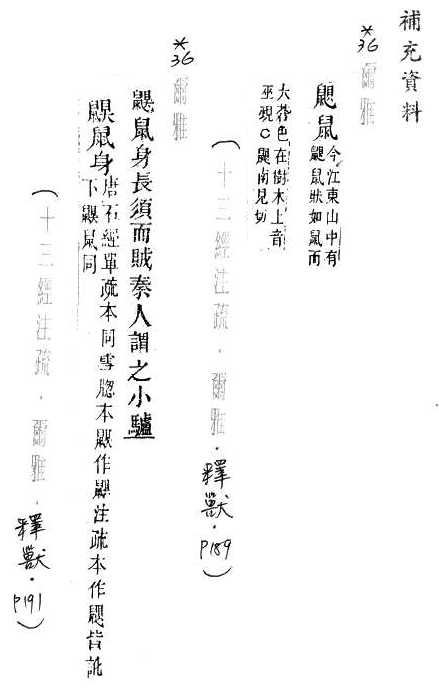 補充資料
*36 爾雅
鼳鼠 今江東山中有
鼳鼠狀如鼠而
大蒼色在樹木上音
巫覡。鼳南見切
(十三經注疏.爾雅.釋獸.P189)
*36 爾雅
鼳鼠身長須而賊秦人謂之小驢
鼳鼠身 唐石經單疏本同雪牕本鼳作鼰注疏本作鼳皆訛
下鼳鼠同
(十三經注疏.爾雅.釋獸.P191)